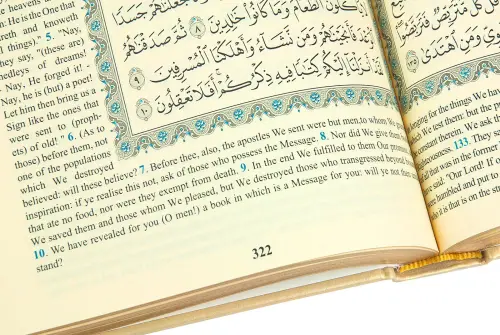 جَعَلْنَٰهُمْ جَسَدًا
يَأْكُلُونَ ٱلطَّعَامَ وَمَا كَانُوا۟ خَٰلِدِينَ ٨ ثُمَّ صَدَقْنَٰهُمُ
فَأَنجَيْنَٰهُمْ وَمَن نَّشَآءُ وَأَهْلَكْنَا ٱلْمُسْرِفِينَ ٩
أَنزَلْنَآ إِلَيْكُمْ كِتَٰبًا فِيهِ ذِكْرُكُمْ أَفَلَا تَعْقِلُونَ ١٠
heavens
He is the One that
eth and knoweth
l things)." 5. "Nay,
ey say, "(these are)
edleys of dreams!
Nay, He forged it! -
Nay, he is (but) a poet!
Let him then bring us a
Sign like the ones that
were sent to (proph-
ets) of old! " 6. (As to
those) before them, not
one of the populations
which We destroyed
believed: will these believe? 7. Before thee, also, the apostles We sent were but men,to whom We
inspiration: if ye realise this not, ask of those who possess the Message. 8. Nor did We give them
that ate no food, nor were they exempt from death. 9. In the end We fulfilled to them Our
We saved them and those whom We pleased, but We destroyed those who transgressed beyond
10. We have revealed for you (O men!) a book in which is a Message for you: will ye not then
stand?
322
كُلٌّ مُّتَرَبِّصٌ
وَمَنِ ٱهْتَدَىٰ ١٣٥
for the things We have
We test them: but the
constant therein. We ask the
133. They
all that was in the former
have said: "Our Lord! If
were humbled and put to
who it is that is on the